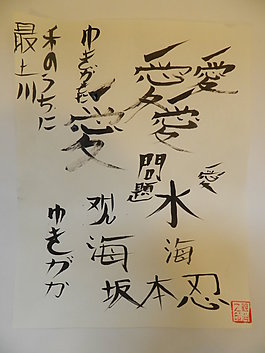 愛
愛
愛
愛
愛
問題
水
海
忍
本
坂
海
観
ゆきがた
ゆきがか
木のうちに
最上川